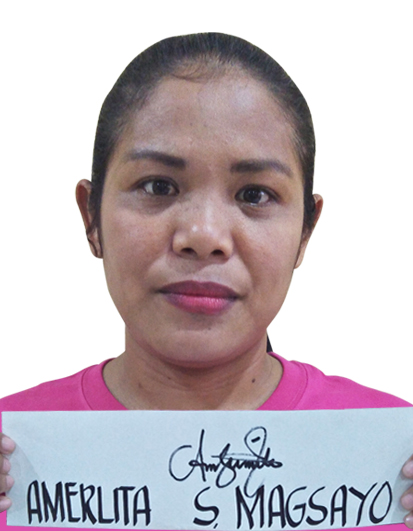 AMERLITA S. MAGSAYO